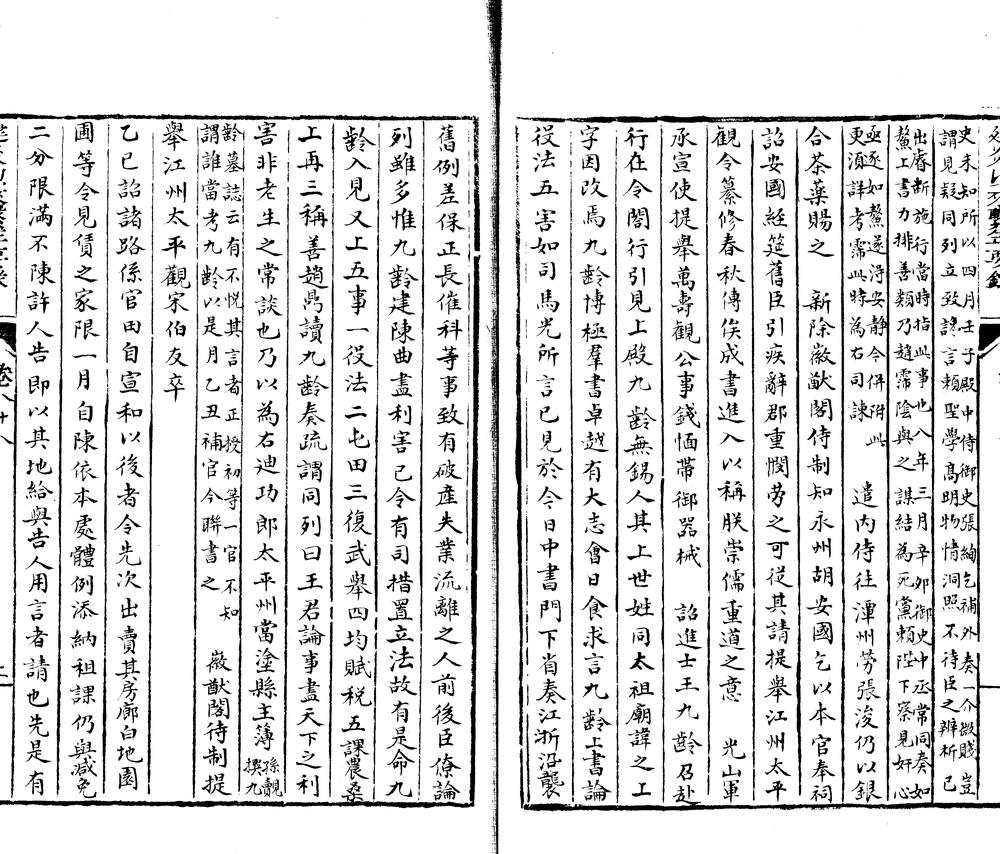 史未知所以四月壬子殿中侍御史張絢乞補外奏一介微賤豈
謂見疑同列立致謗言賴聖學髙明物情洞照不待臣之辨析已
出膺新施行當時指此事也八年三月辛夘御史中丞常同奏如
鰲上書力排善類乃趙霈陰與之謀結為死黨賴陛下察見奸心
亟逐如鰲遂淂安静今併附此
更湏詳考霈此時為右司諫
遣内侍往潭州勞張浚仍以銀
合茶藥賜之　新除徽猷閣侍制知永州胡安國乞以本官奉祠
詔安國經筵舊臣引疾辭郡重憫勞之可從其請提舉江州太平
觀令纂修春秋傳俟成書進入以稱朕崇儒重道之意　光山軍
承宣使提舉萬壽觀公事錢愐帶御器械　詔進士王九齡召赴
行在令閤行引見上殿九齡無錫人其上世姓同太祖廟諱之上
字因改焉九齡博極羣書卓越有大志會日食求言九齡上書論
役法五害如司馬光所言已見於今日中書門下省奏江浙沿襲
舊例差保正長催科等事致有破產失業流離之人前後臣僚論
列雖多惟九齡建陳曲盡利害已令有司措置立法故有是命九
齡入見又上五事一役法二屯田三復武舉四均賦税五課農桑
上再三稱善趙鼎讀九齡奏疏謂同列曰王君論事盡天下之利
害非老生之常談也乃以為右迪功郎太平州當塗縣主薄
孫覿
撰九
齡墓誌云有不悦其言者正授初等一官不知
謂誰當考九齡以是月乙丑補官今聯書之
徽猷閣待制提
舉江州太平觀宋伯友卒
乙巳詔諸路係官田自宣和以後者令先次出賣其房廊白地園
圃等令見賃之家限一月自陳依本處體例添納祖課仍與减免
二分限滿不陳許人告即以其地給與告人用言者請也先是有
卷八十八